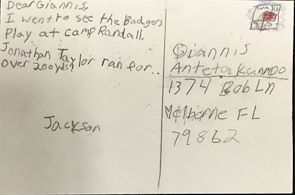 Dear Giannis
I went to see the Badgers
Play at camp Randall.
Jonathan Taylor ran for..
over 200 yds!
Jackson
Giannis
Antetokunmpo
1374 Bob Ln
Melborne FL
79862